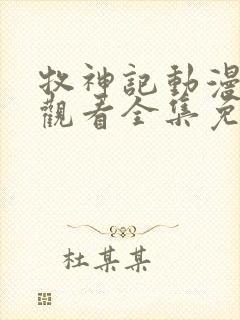 牧神記動漫
觀看全集免
杜某某